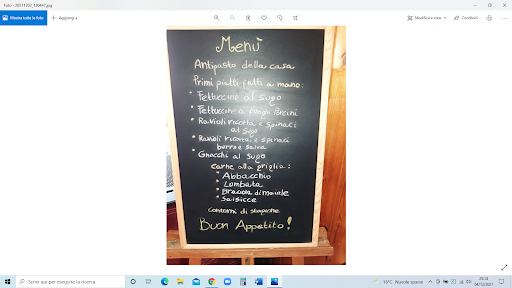 Foto - 20211203_130447.jpg
Mostra tutte le foto
Aggiungi a
Modifica e crea
Condividi
Menù
Antipasto della casa
Primi piatti fatti a mano:
* Fettuccine al sugo
* Fettuccine ai funghi Porcini
* Ravioli ricotta e spinaci
al sugo
* Ravioli ricotta e spinaci
burro e salvia
* Gnocchi al sugo
Carne alla griglia:
* Abbacchio
* Lombata
* Braciola di maiale
* Salsicce
Contorni di stagione
Buon Appetito!
Scrivi qui per eseguire la ricerca
10°C Nuvole sparse
04/12/2021